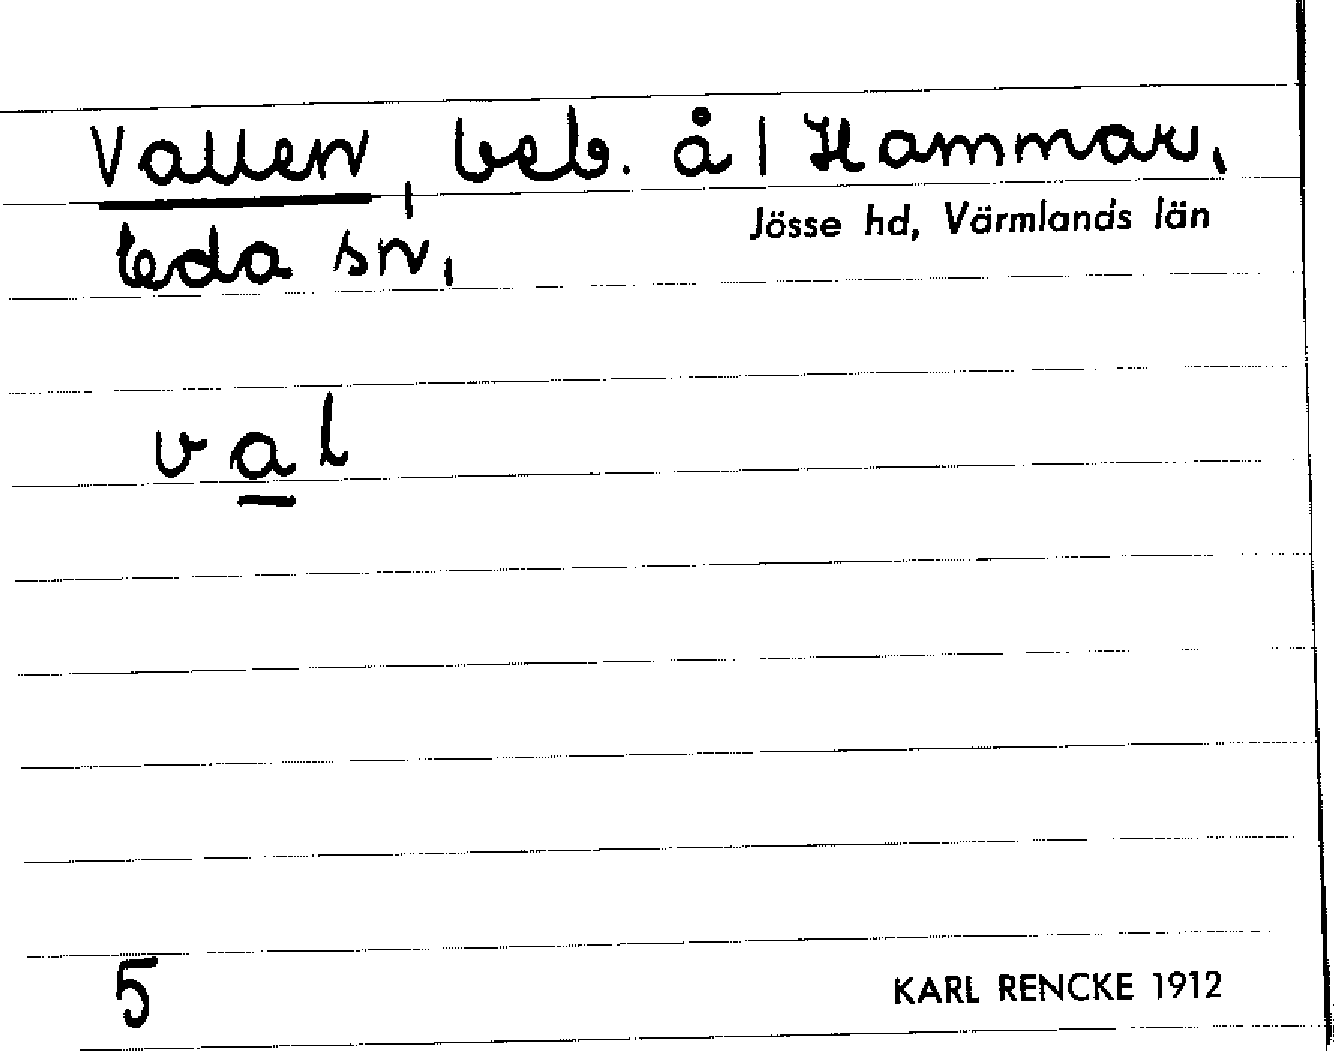 Vallen, beb. å 1 Hammar,
Jösse hd, Värmlands län
Eda sn,
val
5
KARL RENCKE 1912